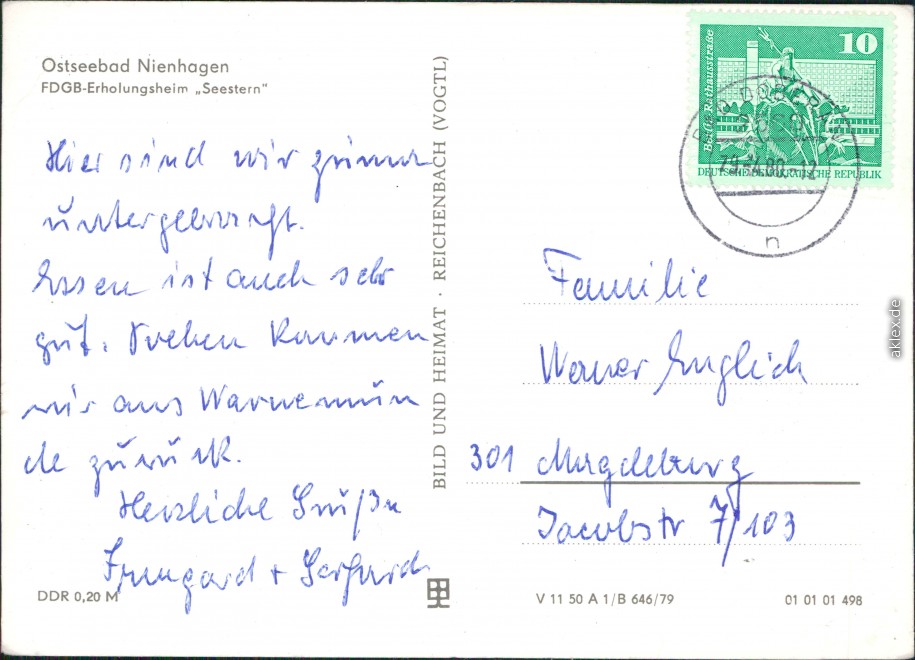 Ostseebad Nienhagen
FDGB-Erholungsheim „Seestern"
Hier sind wir prima
untergebracht.
Essen ist auch sehr
gut. Soeben kommen
wir aus Warnemün
de zurück.
Herzliche Grüße
Irmgard + Gerhard
DDR 0,20 M
BILD UND HEIMAT · REICHENBACH (VOGTL)
10
Berlin, Rathausstraße
DEUTSCHE DEMOKRATISCHE REPUBLIK
BAD DOBERAN
2560
80-12
n
Familie
Werner Englich
301 Magdeburg
Jacobstr 7/103
V 11 50 A 1/B 646/79
01 01 01 498
aklex.de